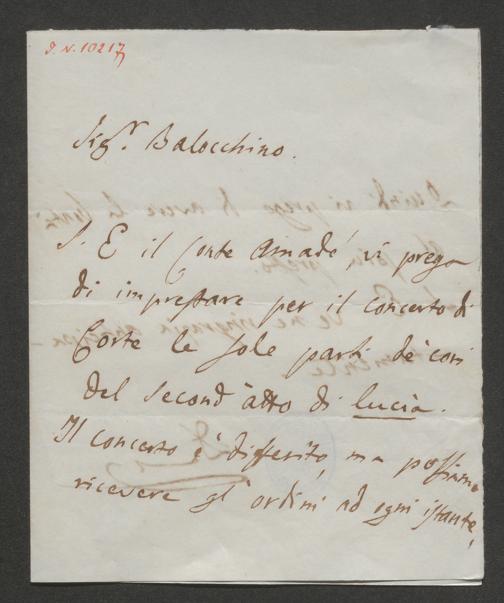 I. N. 10217
Sig.r Balocchino.
S. E il Conte Amadé, vi prega
di imprestare per il concerto di
Corte le sole parti de' cori
del second'atto di lucia.
Il concerto è differito, ma possiamo
ricevere gl'ordini ad ogni istante,